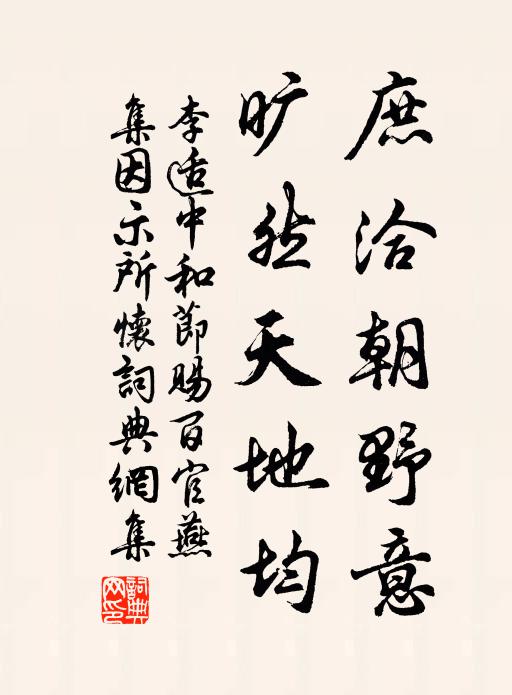 庶洽朝野意
旷然天地均
李适中和節賜百官燕
集因示所懷詞典網集
詞典网印